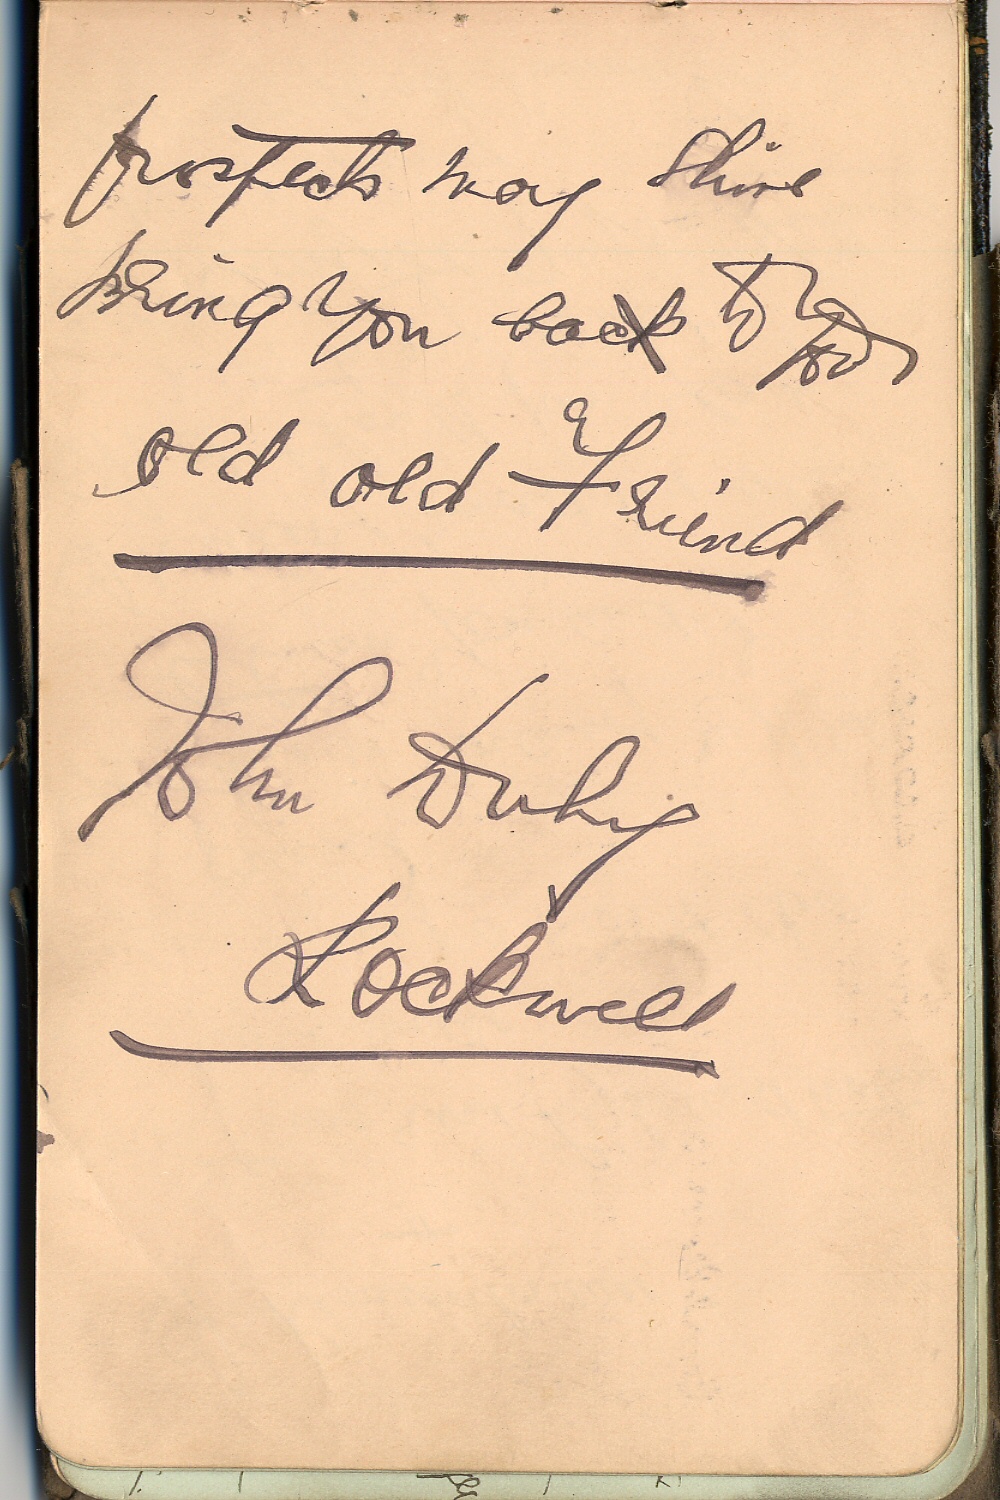 prospects may shine
bring you back to your
old old Friend
John Duhig
Rockwell